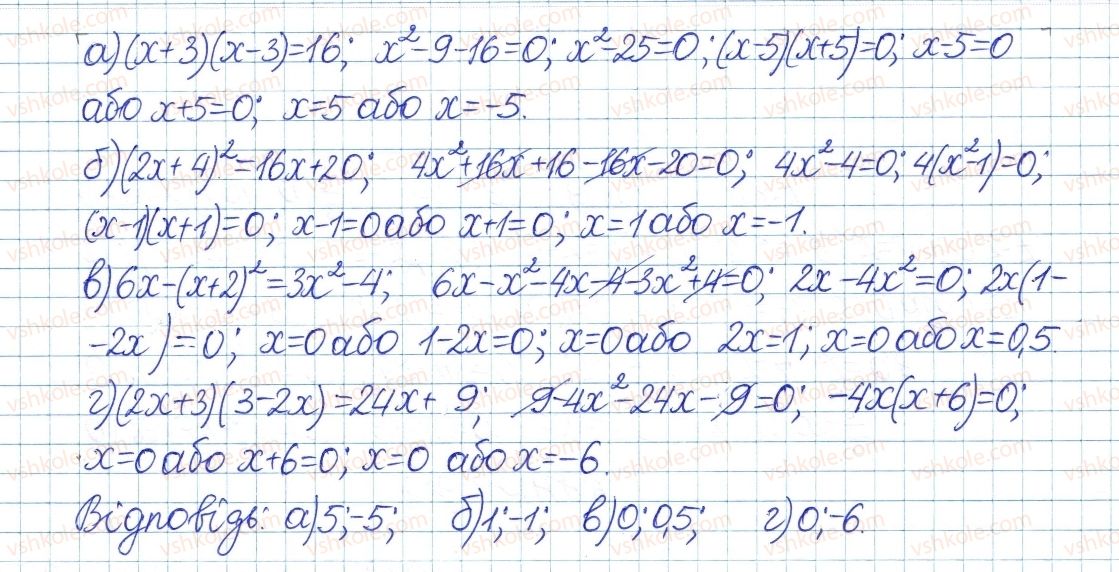 а) (x+3)(x-3)=16; x²-9-16=0; x²-25=0; (x-5)(x+5)=0; x-5=0
або x+5=0; x=5 або x=-5.
б) (2x+4)²=16x+20; 4x²+16x+16-16x-20=0; 4x²-4=0; 4(x²-1)=0;
(x-1)(x+1)=0; x-1=0 або x+1=0; x=1 або x=-1.
в) 6x-(x+2)²=3x²-4; 6x-x²-4x-4-3x²+4=0; 2x-4x²=0; 2x(1-
-2x)=0; x=0 або 1-2x=0; x=0 або 2x=1; x=0 або x=0,5.
г) (2x+3)(3-2x)=24x+9; 9-4x²-24x-9=0; -4x(x+6)=0;
x=0 або x+6=0; x=0 або x=-6.
Відповідь: а) 5; -5; б) 1; -1; в) 0; 0,5; г) 0; -6.